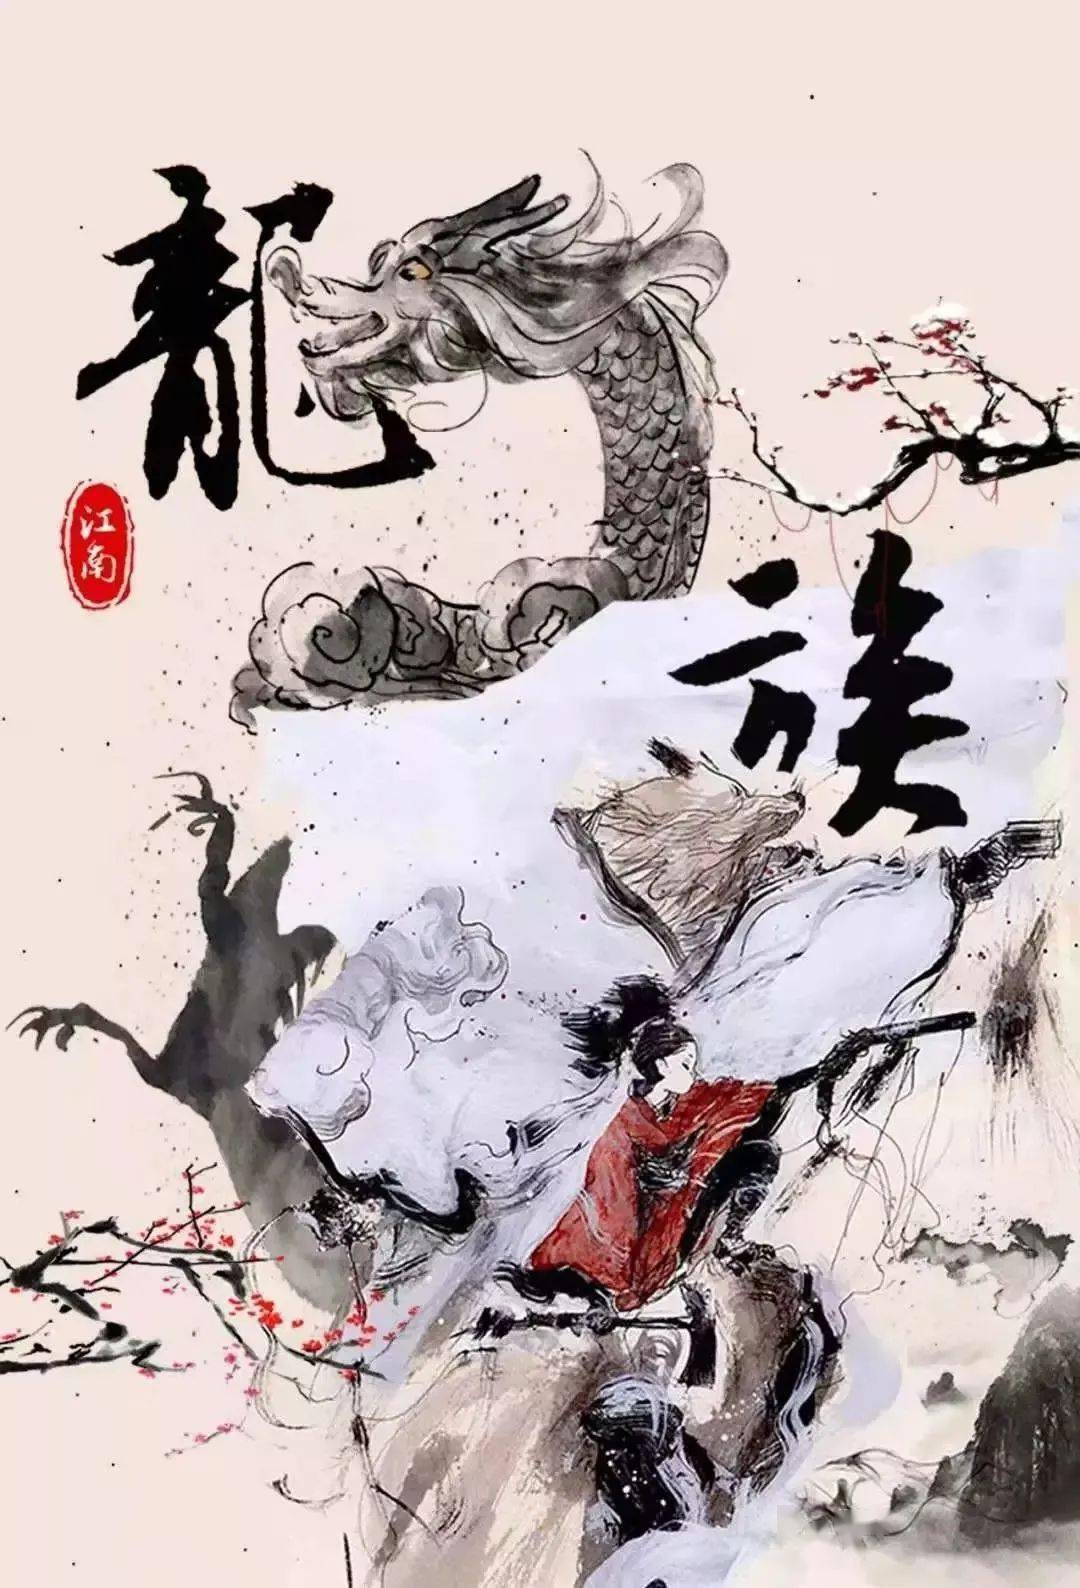 龍
族
江南